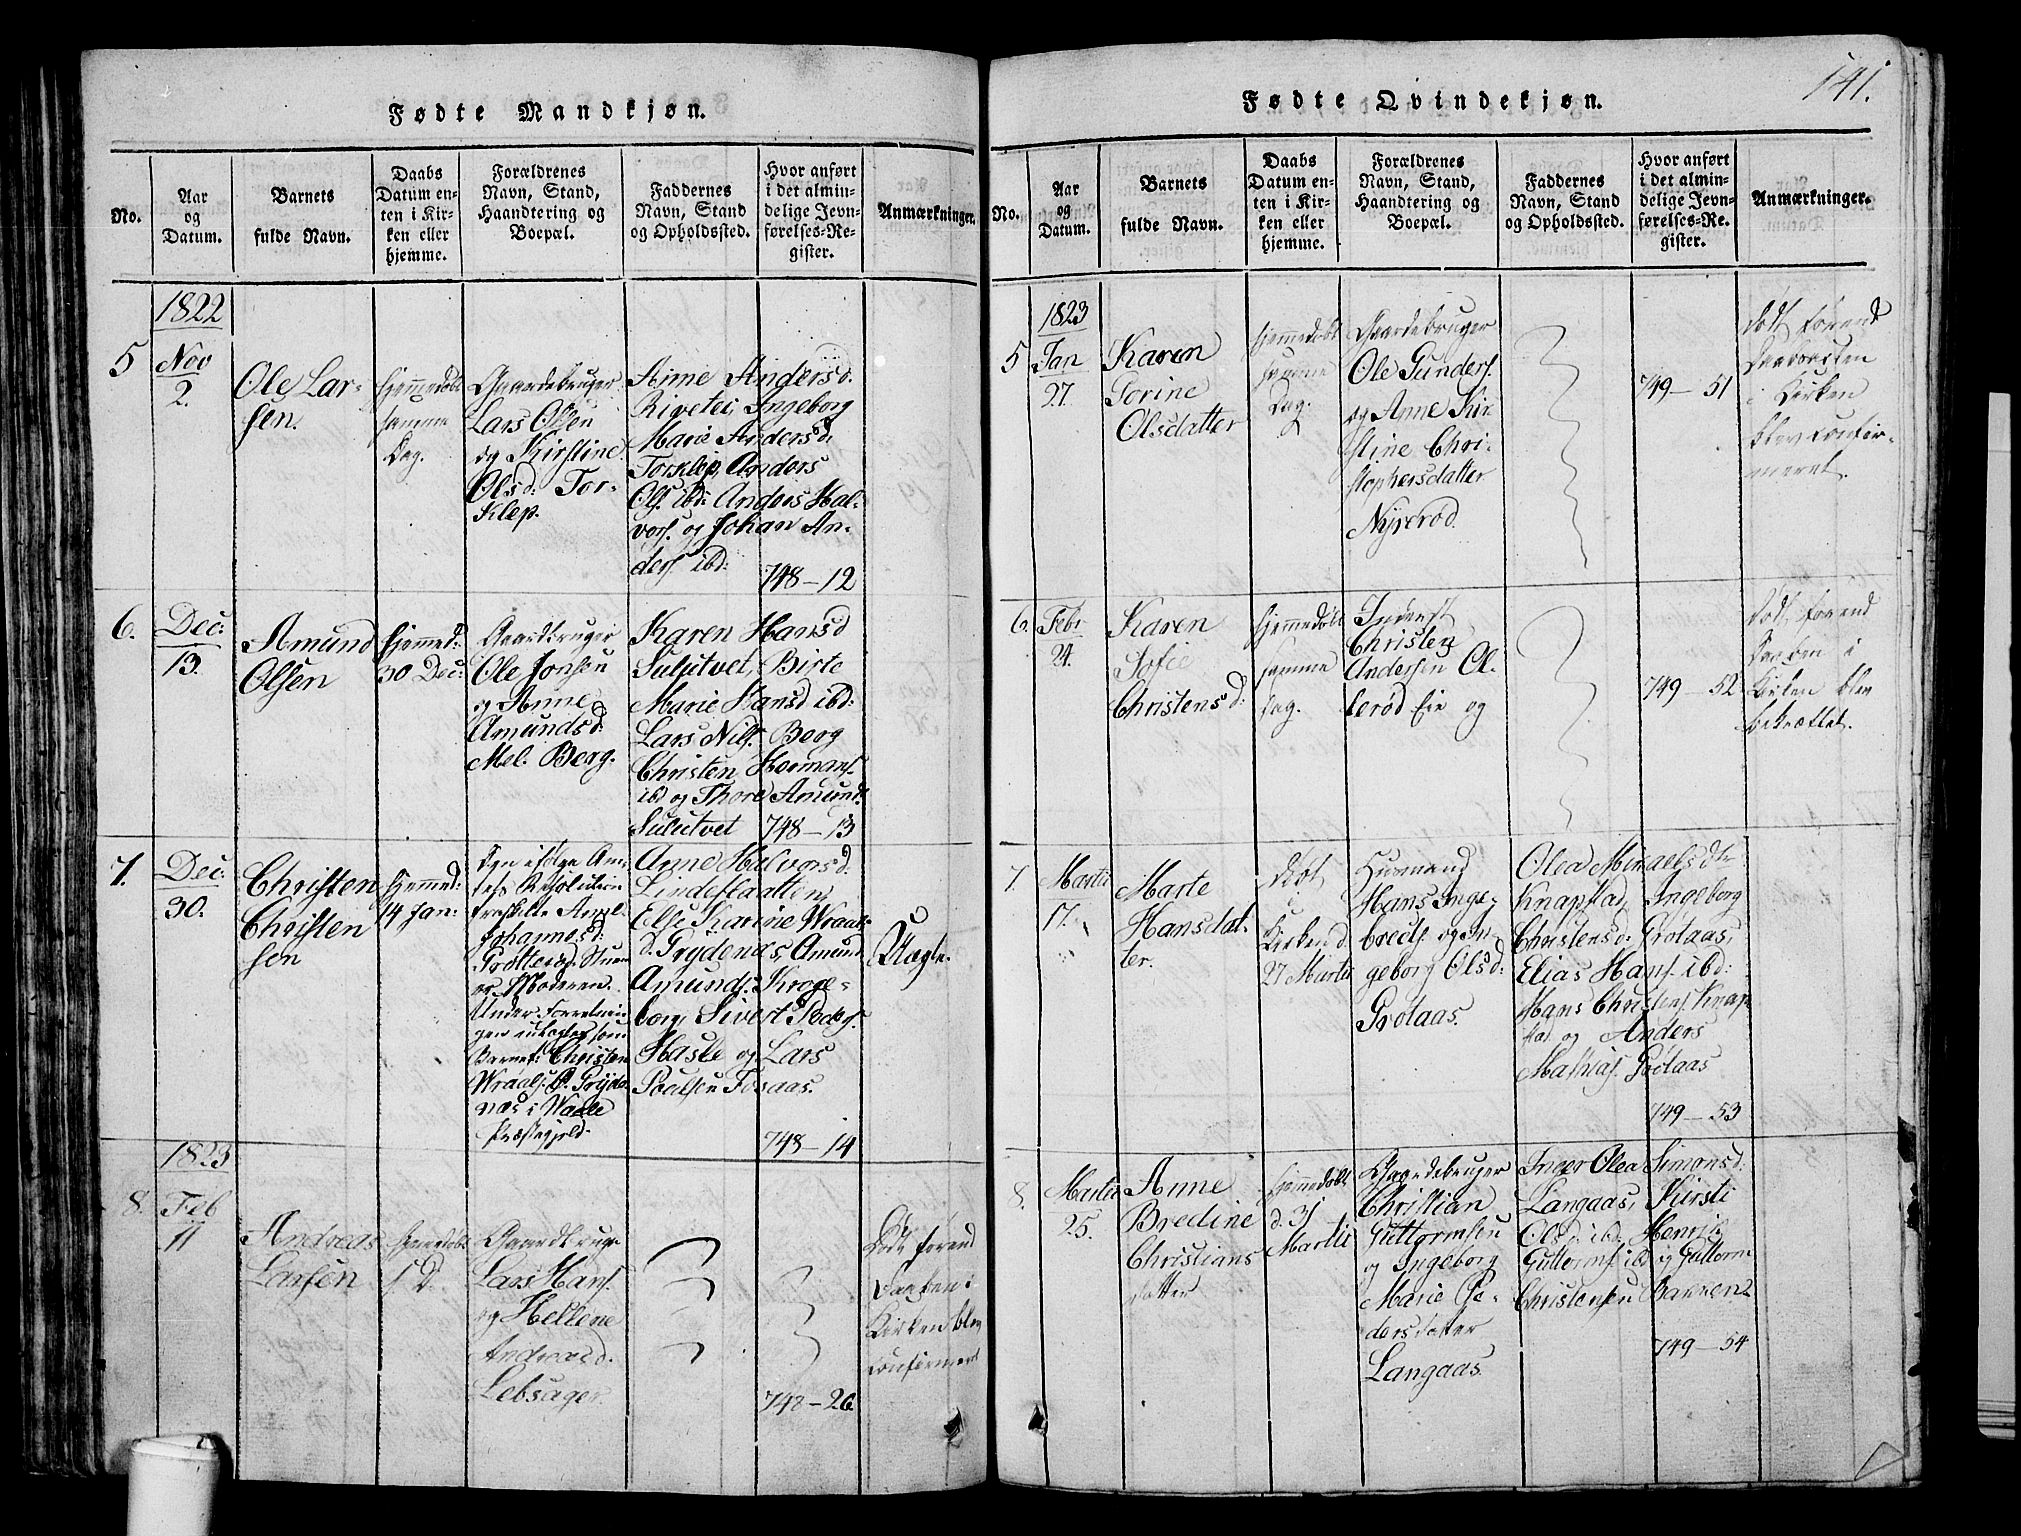 Fødte Mandkjøn.
No.
Aar
og
Datum.
Barnets
fulde Navn.
Daabs
Datum en-
ten i Kir-
ken eller
hjemme.
Forældrenes
Navn, Stand,
Haandtering og
Boepæl.
Faddernes
Navn, Stand
og Opholdssted.
Hvor anført
i det almin-
delige Jevn-
førelses-Re-
gister.
Anmærkninger.
1822
5
Nov
2.
Ole Lar-
sen.
Hjemmedøbt
samme
Dag.
Gaardebruger
Lars Olsen
og Kirstine
Olsd: Tor-
klep.
Anne Andersd.
Rivetei, Ingeborg
Marie Andersd:
Torklep, Anders
Ols. ibd: Anders Hal-
vors. og Johan An-
ders ibd:
748-12
6.
Dec:
13.
Amund
Olsen
Hjemmed:
30 Dec:
Gaardbruger
Ole Jonsen
og Anne
Amundsd:
Mel. Berg.
Karen Hansd
Sulutvet, Birte
Marie Hansd ibd:
Lars Nils. Berg
Christen Hermans.
ibd og Thore Amund.
Sulutvet
748-13
7.
Dec:
30.
Christen
Christen
sen
Hjemmed:
14 Jan:
Resolution
Johannesd:
Moderen.
Under
som
Barnef: Christen
Wraals. P. Gryde-
næs i Waale
Præstegjeld.
Anne Halvorsd:
Lindeslaatten,
Else Karine Wraals
d. Grydenæs, Amund
Amunds. Kroge-
borg, Sivert Peders.
Hasle og Lars
Poulsen Fosaas.
748-14
Uægte.
1823
8.
Feb
11
Andreas
Larsen
Hjemmedøbt
s. D.
Gaardbruger
Lars Hans.
og Hellene
Andreasd.
Lebsager
748-26
Døde forend
Daaben i
Kirken blev
confirmert
141.
Fødte Qvindekjøn.
No.
Aar
og
Datum.
Barnets
fulde Navn.
Daabs
Datum en-
ten i Kir-
ken eller
hjemme.
Forældrenes
Navn, Stand,
Haandtering og
Boepæl.
Faddernes
Navn, Stand
og Opholdssted.
Hvor anført
i det almin-
delige Jevn-
førelses-Re-
gister.
Anmærkninger.
1823
5
Jan
27.
Karen
Sorine
Olsdatter
Hjemmedøbt
samme
Dag.
Gaardebruger
Ole Gunders.
og Anne Kir-
stine Chri-
stophersdatter
Nyrerød.
749-51
Død forend
i Kirken
blev confir-
meret.
6.
Febr
24.
Karen
Sofie
Christensd:
Hjemmedøbt
samme
Dag.
Inderst
Christen
Andersen Ol-
lerød Eie og
749-52
Død forend
Daaben i
Kirken blev
bekræftet.
7.
Martii
17.
Marte
Hansdat-
ter.
Døbt
i
Kirken d
27 Martii
Husmand
Hans Inge-
breds. og In-
geborg Olsd:
Grotaas.
Olea Mikaelsdtr
Knapstad, Ingeborg
Christensd. Grotaas,
Elias Hans. ibd:
Hans Christens. Knap-
stad og Anders
Mathias. Grotaas
749-53
8.
Martii
25.
Anne
Bredine
Christians
datter
Hjemmedøbt
d. 31
Martii
Gaardebruger
Christian
Guttormsen
og Ingeborg
Marie Pe-
dersdatter
Langaas.
Inger Olea Simonsd:
Langaas, Kirsti
Olsd. ibd, Henrik
Guttorms. ibd og Guttorm
Christensen
749-54